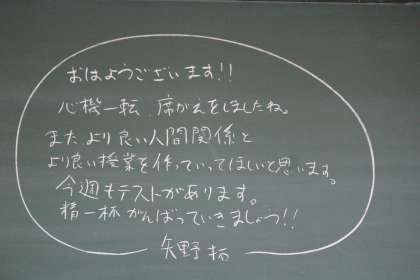 おはようございます!!
心機一転、席がえをしましたね。
また、より良い人間関係と
より良い授業を作っていってほしいと思います。
今週もテストがあります。
精一杯がんばっていきましょう!!
矢野